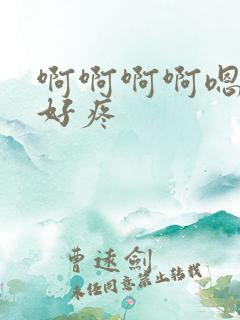 啊啊啊啊嗯
好疼
曹逑剑
未经同意禁止转载